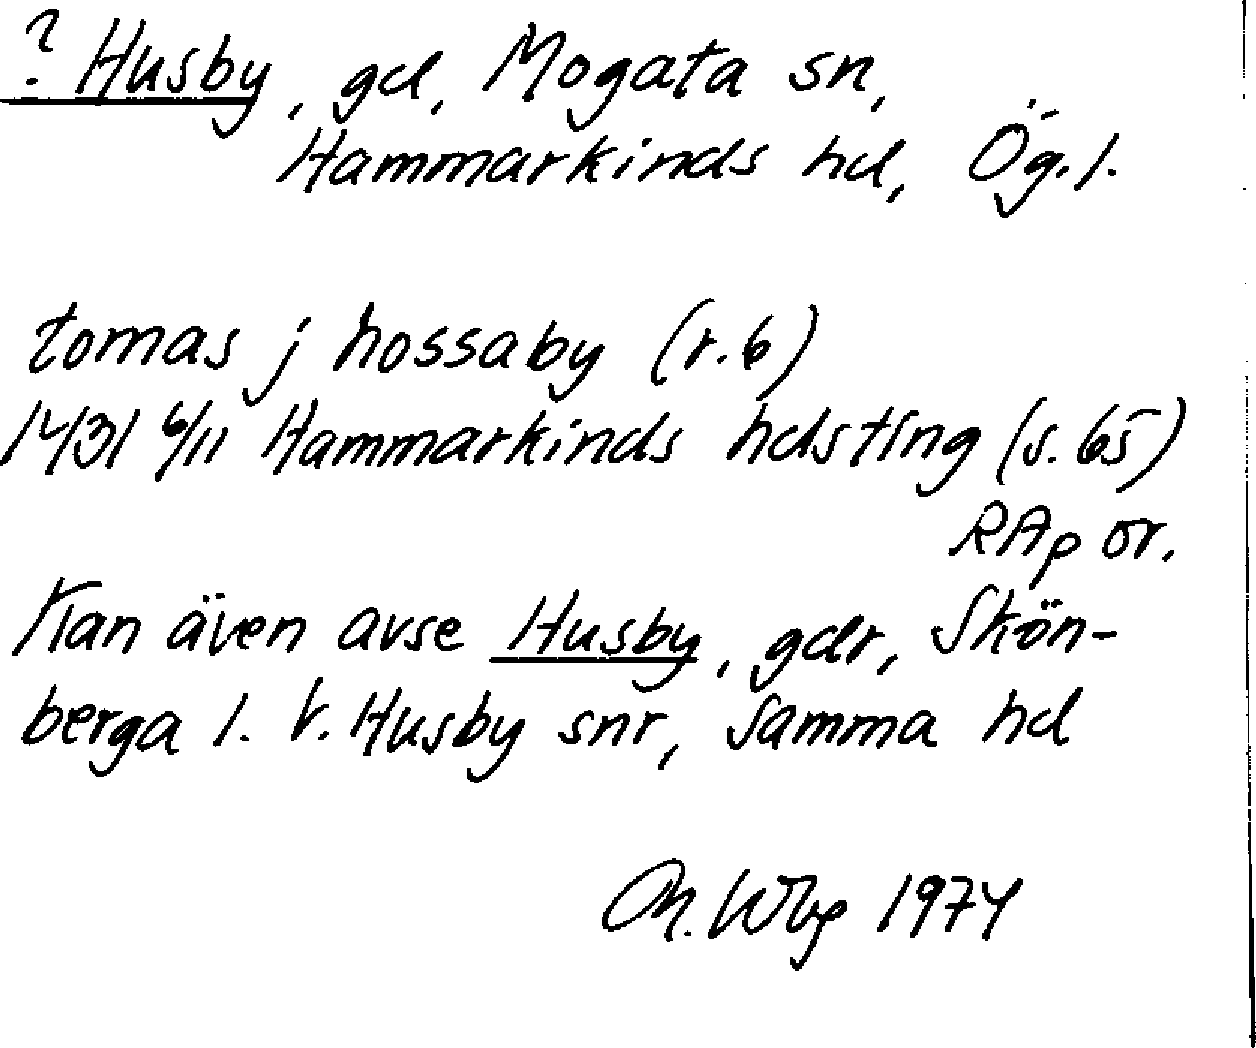 ? Husby, gd, Mogata sn,
Hammarkinds hd, Ög.l.
tomas j hossaby (r.6)
1431 6/11 Hammarkinds hdsting (s. 65)
RAp or.
Kan även avse Husby, gdr, Skön-
berga l. V. Husby snr, samma hd
1974